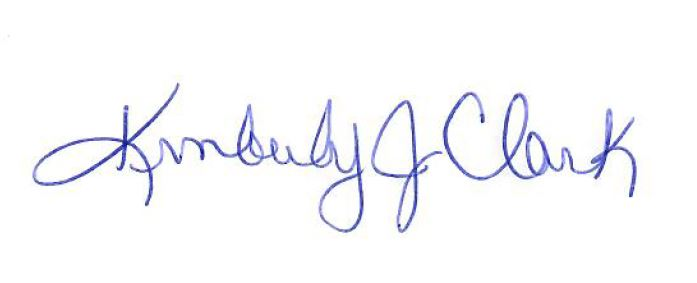 Kimberly J Clark